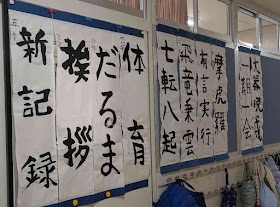 大器晩成
一期一会
摩虎羅
有言実行
飛竜乗雲
七転八起
体育
だるま
挨拶
新記録